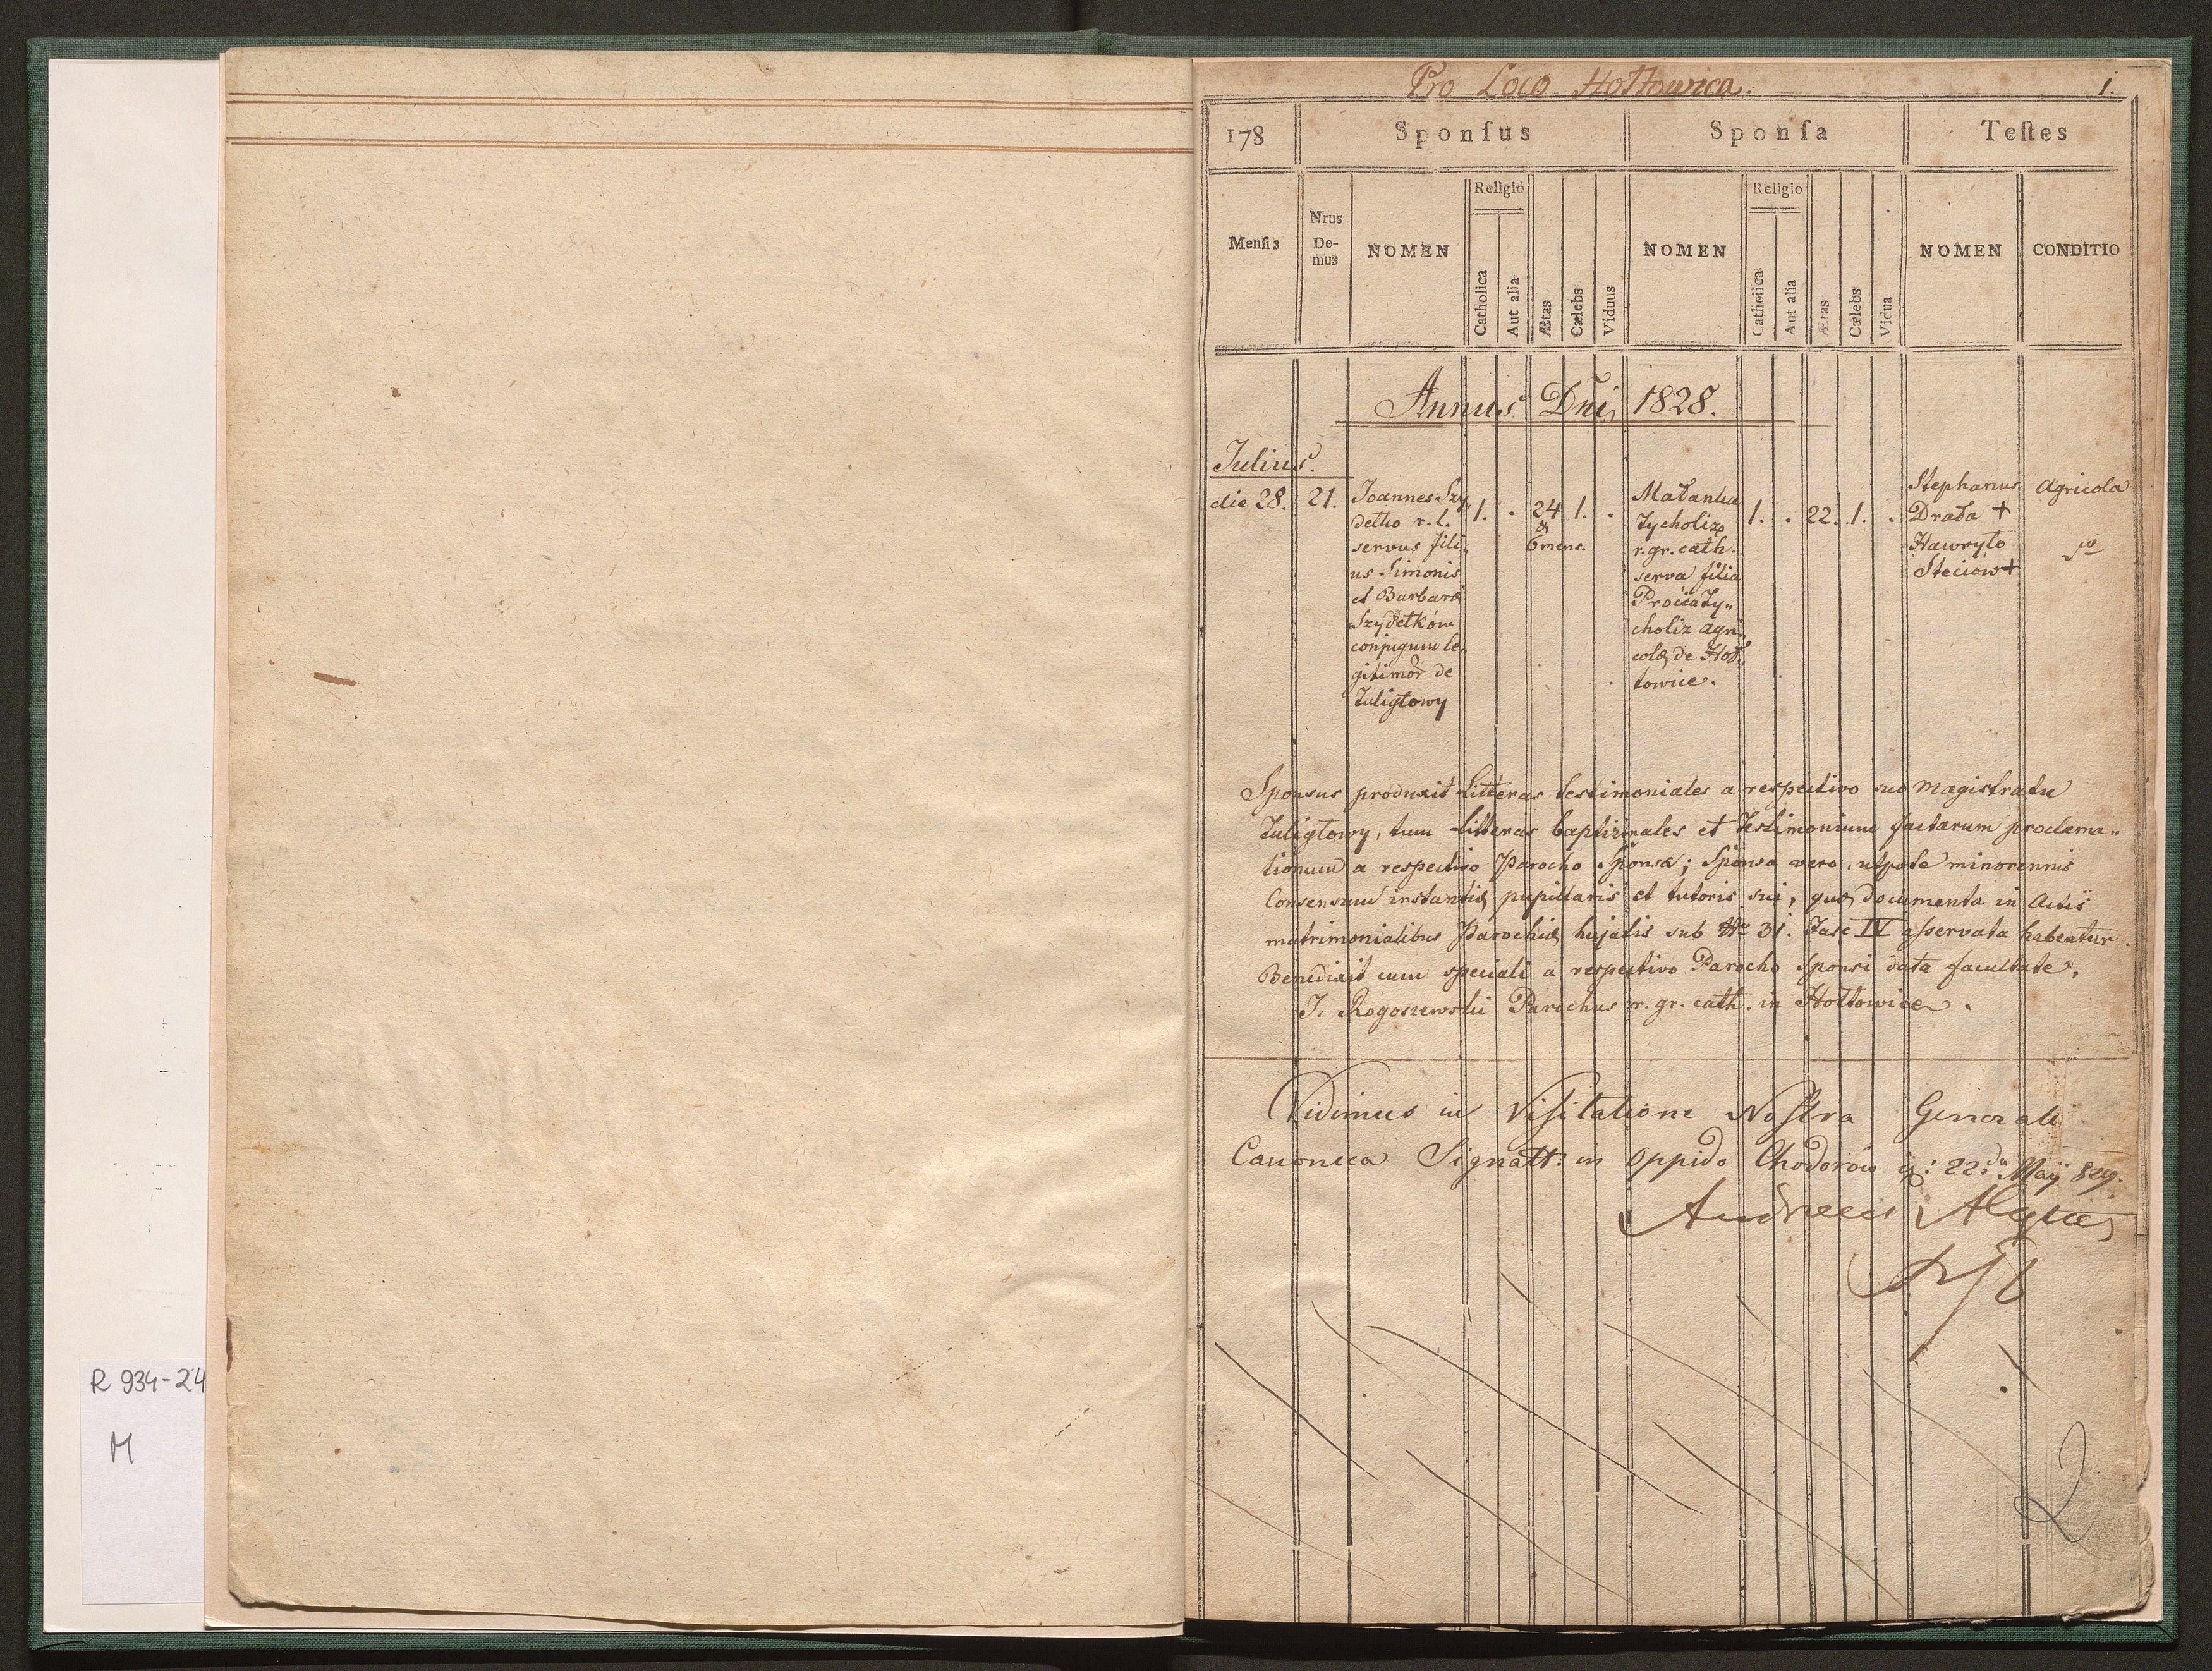 R 934-24
M
Pro Loco Hołłowica.
1.
178
Sponſus
Sponſa
Teſtes
Menſis
Nrus Do-mus
NOMEN
Religio
Catholica
Aut alia
Ætas
Cælebs
Viduus
NOMEN
Religio
Catholica
Aut alia
Ætas
Cælebs
Vidua
NOMEN
CONDITIO
Annus Dni 1828.
Julius.
die 28.
21.
Joannes Szy„
dełko r. l.
servus fili„
us Simonis
et Barbaræ
Szydełków
conjugum le„
gitimor de
Tuligłowy
1.
24
&
6 mens.
1.
Małanka
Tycholiz
r. gr. cath.
serva filia
Ty„
choliz agri„
colæ de Hoł„
towice.
1.
22.
1.
Stephanus
Drała +
Hawryło
Steciow +
Agricola
Sponsus produxit litteras testimoniales a respectivo suo Magistratu
Tuligłowy, tum litteras baptismales et testimonium factarum proclama„
tionum a respectivo Parocho Sponsæ; Sponsa vero utpote minorennis
Consensum instantiæ pupillaris et tutoris sui, quæ documenta in Actis
matrimonialibus Parochiæ hujatis sub Nr 31. Fasc IV asservata habentur.
Benedixit cum speciali a respectivo Parocho Sponsi data facultate,
J. Rogoszewski Parochus r. gr. cath. in Hołłowice.
Vidimus in Visitatione Nostra Generali
Canonica Signatt: in Oppido Chodorów 22: Maÿ 829.
Andreas